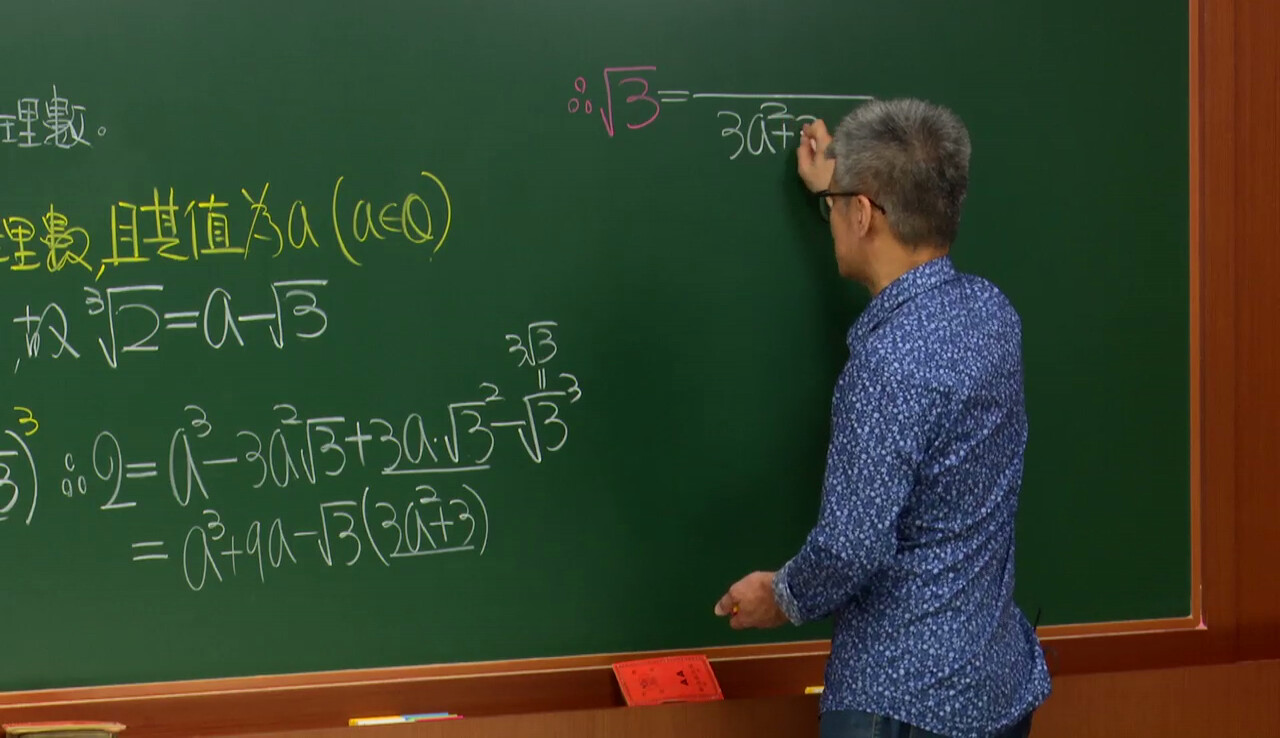 理數。
理數,且其值為a(a∈Q)
,故 ∛2=a-√3
3√3
=
3) ³ ∴2=a³-3a²√3+3a·√3²-√3³
=a³+9a-√3(3a²+3)
∴√3=
3a²+